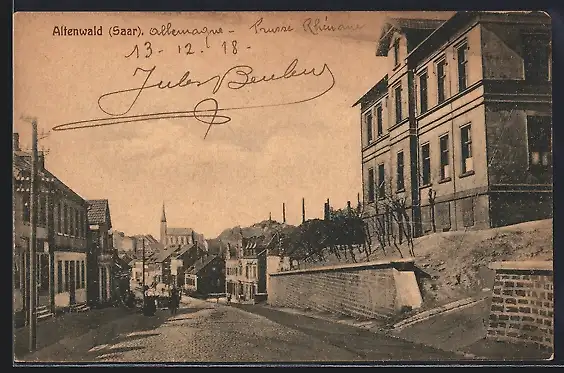 Altenwald (Saar). Allemagne - Prusse Rhénane
13-12-18
Jules